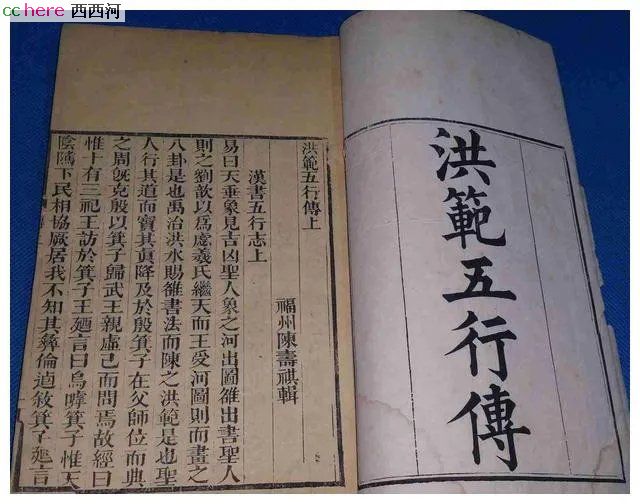 cchere 西西河
洪範五行傳
洪範五行傳上
福州陳壽祺輯
漢書五行志上
易曰天垂象見吉凶聖人象之河出圖雒出書聖人
則之劉歆以爲虙羲氏繼天而王受河圖則而畫之
八卦是也禹治洪水賜雒書法而陳之洪範是也聖
人行其道而寶其眞降及於殷箕子在父師位而典
之周旣克殷以箕子歸武王親虛己而問焉故經曰
惟十有三祀王訪於箕子王廼言曰烏嘑箕子惟天
陰隲下民相協厥居我不知其彝倫逌敘箕子廼言